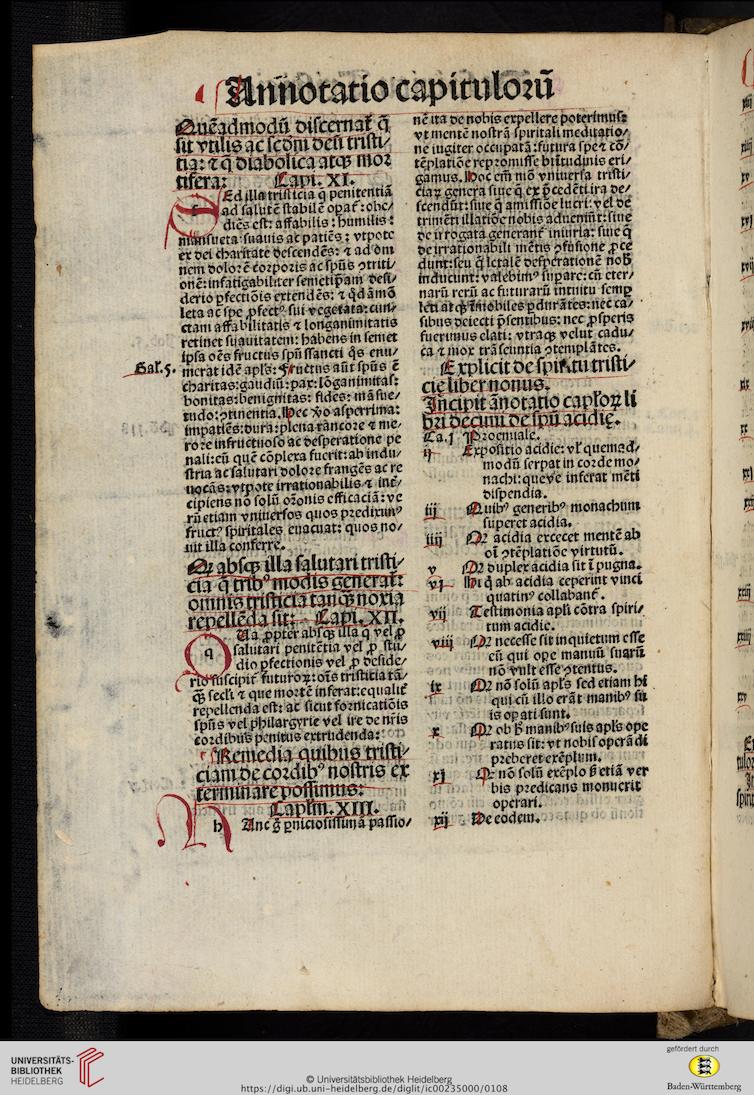 Anñotatio capitulorũ
Quẽadmodũ discernat᷑ q̃
sit vtilis ac scd̃m deũ tristi/
tia: ⁊ q̃ diabolica atqꝫ mor
tifera: Capi. XI.
SEd illa tristicia q̃ penitentiã
ad salutẽ stabilẽ opat᷑: obe/
diẽs est: affabilis: humilis:
mansueta: suauis ac patiẽs: vtpote
ex dei charitate descendẽs: ⁊ ad om
nem dolorẽ corporis ac spũs ꝯtriti/
onẽ: infatigabiliter semetip̃am desi/
derio ꝑfectiõis extendẽs: ⁊ q̃dãmõ
leta ac spe ꝓfectꝰ sui vegetata: cun/
ctam affabilitatis ⁊ longanimitatis
retinet suauitatem: habens in semet
ipsa oẽs fructus spũssancti q̃s enu/
Gal. 5.
merat idẽ apl̃s: Fructus aũt spũs ẽ
charitas: gaudiũ: pax: lõganimitas:
bonitas: benignitas: fides: mãsue/
tudo: ꝯtinentia. Hec v̾o asperrima:
impatiẽs: dura: plena rancore ⁊ me/
rore infructuoso ac desperatione pe
nali: eũ quẽ cõplexa fuerit: ab indu/
stria ac salutari dolore frangẽs ac re
uocãs: vtpote irrationabilis ⁊ int̾/
cipiens nõ solũ or̃onis efficaciã: ve
rũetiam vniuersos quos prediximꝰ
fructꝰ spiritales euacuat: quos no/
uit illa conferre.
Q absqꝫ illa salutari tristi/
cia q̃ tribꝰ modis generat᷑:
omnis tristicia tanqꝫ noxia
repellẽda sit: Capi. XII.
q Ua ꝓpter absqꝫ illa q̃ vel ꝓ
salutari penitẽtia vel ꝓ stu/
dio ꝑfectionis vel ꝓ deside/
rio suscipit᷑ futuroꝝ: oĩs tristitia tã/
q̃ꝫ secl̃i ⁊ que mortẽ inferat: equalit᷑
repellenda est: ac sicut fornicatiõis
spũs vel philargyrie vel ire de nr̃is
cordibus penitus extrudenda:
Remedia quibus tristi/
ciam de cordibꝰ nostris ex
terminare possumus:
Caplm̃. XIII.
h Anc g̃ ꝑniciosissimã passio/
nẽ ita de nobis expellere poterimus:
vt mentẽ nostrã spiritali meditatio/
ne iugiter occupatã: futura spe ⁊ cõ/
tẽplatiõe repromisse bt̃itudinis eri/
gamus. Hoc em̃ mõ vniuersa tristi/
ciaꝝ genera siue q̃ ex p̃cedẽti ira de/
scendũt: siue q̃ amissiõe lucri: vel de
trimẽti illatiõe nobis adueniũt: siue
de irrogata generant᷑ iniuria: siue q̃
de irrationabili mẽtis ꝯfusione ꝓce
dunt: seu q̃ letalẽ desperationẽ nob̃
inducunt: valebimꝰ supare: cũ eter/
narũ rerũ ac futurarũ intuitu semꝑ
leti atqꝫ ĩmobiles ꝑdurãtes: nec ca/
sibus deiecti p̃sentibus: nec ꝓsperis
fuerimus elati: vtraqꝫ velut cadu/
ca ⁊ mox trãseuntia ꝯtemplãtes.
Explicit de spiritu tristi/
cie liber nonus.
Incipit ãnotatio capl̃oꝝ li
bri decimi de spũ acidię.
Ca.j Proemiale.
ij Expositio acidie: vl̾ quemad/
modũ serpat in corde mo/
nachi: queve inferat mẽti
dispendia.
iij Quibꝰ generibꝰ monachum
superet acidia.
iiij Q acidia excecet mentẽ ab
oĩ ꝯtẽplatiõe virtutũ.
v Q duplex acidia sit ĩ pugna.
vj Hi q̃ ab acidia ceperint vinci
quatinꝰ collabant᷑.
vij Testimonia apl̃i cõtra spiri/
tum acidie.
viij Q necesse sit inquietum esse
eũ qui ope manuũ suarũ
nõ vult esse ꝯtentus.
ix Q nõ solũ apl̃s sed etiam hi
qui cũ illo erãt manibꝰ su
is opati sunt.
x Q ob h̾ manibꝰ suis apl̃s ope
ratus sit: vt nobis operãdi
preberet exẽplum.
xj Q nõ solũ exẽplo s̾ etiã ver
bis predicans monuerit
operari.
xij De eodem.
UNIVERSITÄTS-
BIBLIOTHEK
HEIDELBERG
© Universitätsbibliothek Heidelberg
https://digi.ub.uni-heidelberg.de/diglit/ic00235000/0108
gefördert durch
Baden-Württemberg